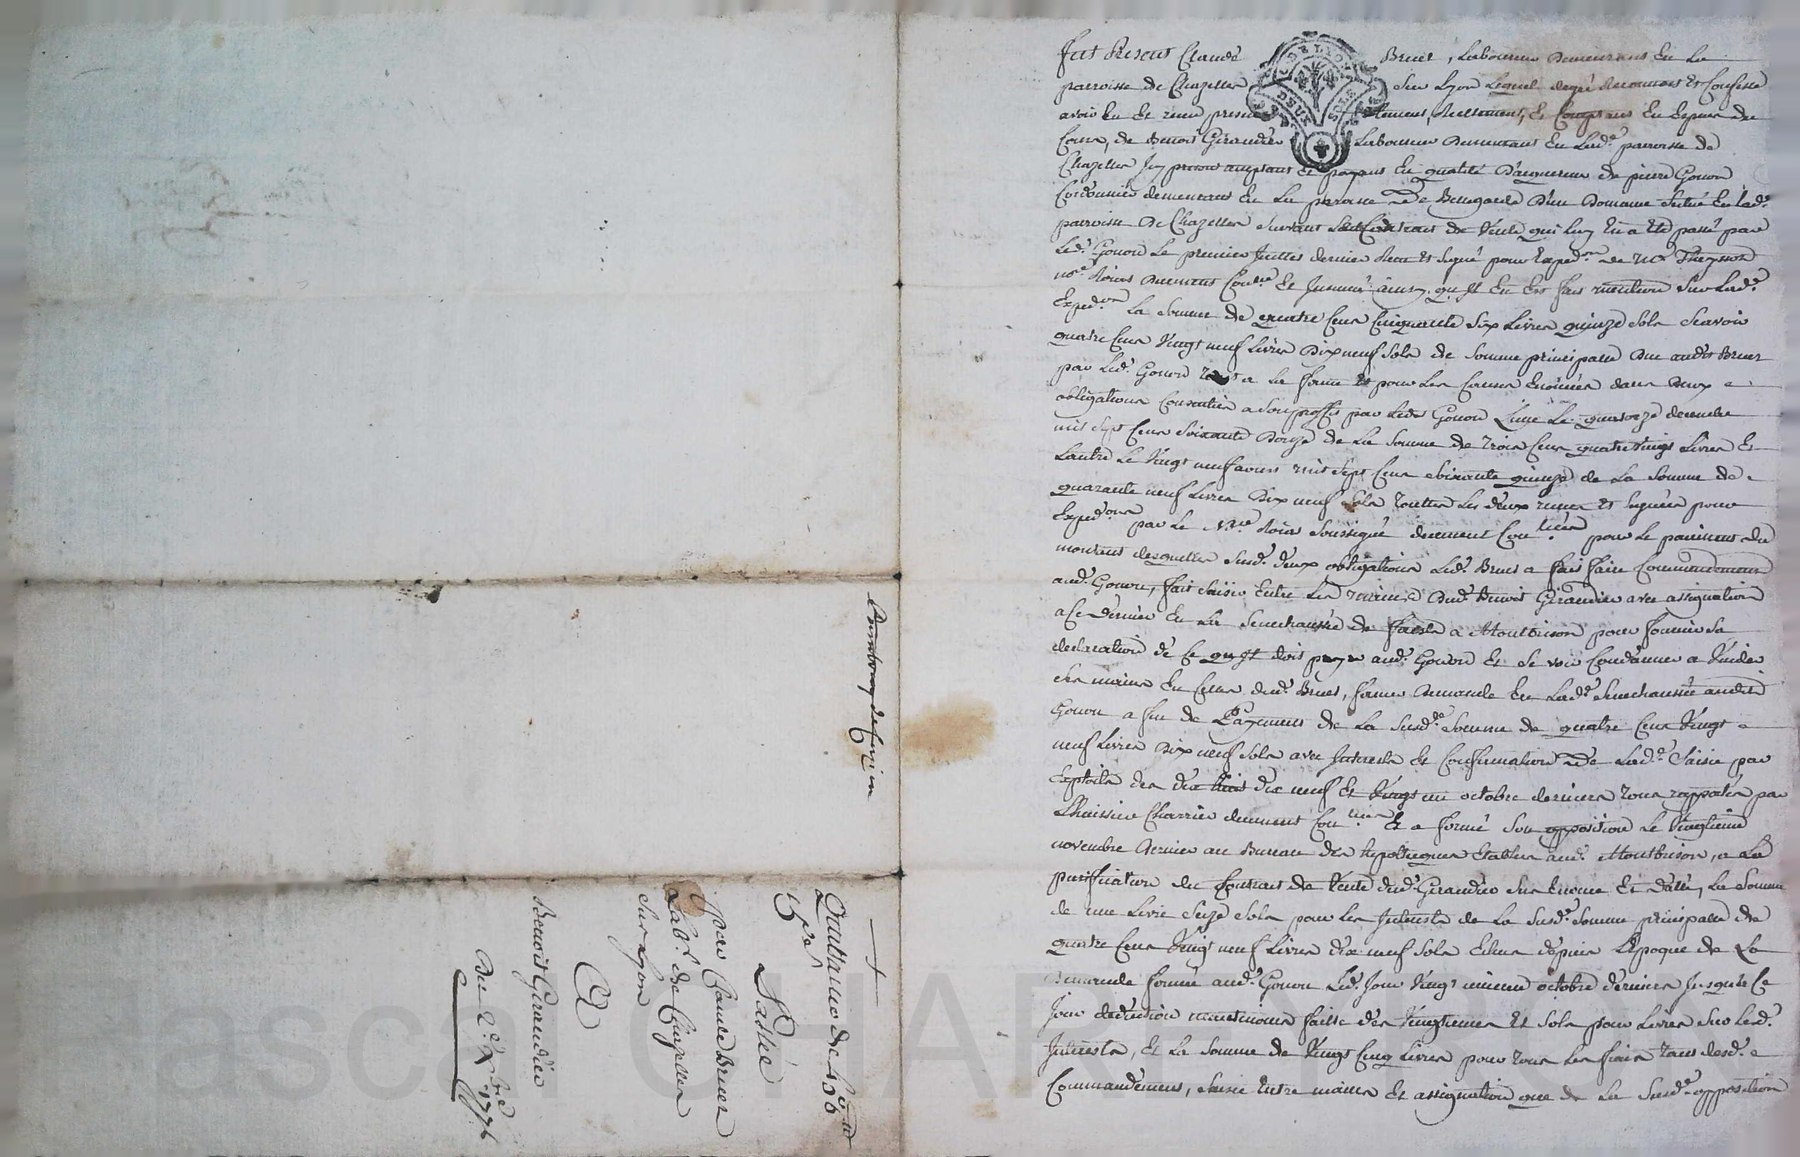 Fut Présent Claude Bruet, Laboureur Demeurant En La
parroisse de Chazelles sur Lyon Lequel degré Reconnoit Et Confesse
avoir Eu Et receu presentement, Reellement, Et Comptant En Espece de
Cours, de Benoit Girandier Laboureur Demeurant En Lade. parroisse de
Chazelles Icy present acceptant Et payant En qualité D'acquereur de pierre Gouon
Cordonnier demeurant En La parroisse de Bellegarde D'un Domaine Situé En lade.
parroisse De Chazelles suivant Le Contrat de Vente qui luy En a Eté passé par
Led. Gouon Le premier Juillet dernier Receu Et Signé pour Expedon. de Me Theysson
nore. Roial Duement Conlé Et Insinué ainsy qu'Il En Est fait mention Sur Lade.
Expedon. La Somme de quatre Cent Cinquante Six Livres quinze Sols Scavoir
quatre Cent Vingt neuf Livres Dix neuf Sols de Somme principalle Due audit Bruet
par Led. Gouon a La forme Et pour Les Causes Enoncées dans Deux
obligations Consenties a Son proffit par Ledt Gouon L'une Le quatorze decembre
mil Sept Cent Soixante Douze de La Somme de trois Cent quatre Vingt Livres Et
L'autre Le Vingt neuf aoust mil Sept Cent Soixante quinze de La Somme de
quarante neuf Livres Dix neuf Sols toutes Les deux receues Et Signées pour
Expedon par Le Nre. Roial Soussigné duement Conlées pour Le paiement du
montant desquelles Susd. deux obligations Led. Bruet a fait faire Commandement
aud. Gouon, fait Saisir Entre Les mains Dud. Benoit Girandier avec assignation
a Ce Dernier En La Senechaussée de forest a Montbrison pour fournir Sa
declaration de Ce qu'Il doit payer aud. Gouon Et Se voir Condamner a Vuider
Ses mains En Celles dud. Bruet, former Demande En Lade. Senechaussée audit
Gouon a fin de Payement de La Susde. Somme de quatre Cent Vingt
neuf Livres Dix neuf Sols avec Interests Et Confirmation de Lade. Saisie par
Exploits des dix huit dix neuf Et Vingt un octobre derniers tous rapportés par
L'huissier Charrier duement Conlés Et a formé Son opposition Le Vingtieme
novembre Dernier au Bureau des hypotheques Etablis aud. Montbrison, a La
purification du Contrat de Vente dud. Girandier Sus Enoncé Et daté, La Somme
de une Livre Seize Sols pour Les Interests de La Susde. Somme principalle de
quatre Cent Vingt neuf Livres dix neuf Sols Echus depuis L'Epoque de La
Demande formée aud. Gouon Led. Jour Vingt unieme octobre dernier Jusqu'à Ce
Jour deduction faitte des Vingtiemes Et Sols pour Livres Sur Lesd.
Interests, Et La Somme de Vingt Cinq Livres pour tous Les frais tant desd.
Commandement, Saisie Entre mains Et assignation que de La Susde. opposition
Quittance de 456
15s
Passée
Par Claude Bruet
Labr. de Chazelles
Sur Lyon
A
Benoit Girandier
Du 2e Xbre 1776
Pascal CHARR